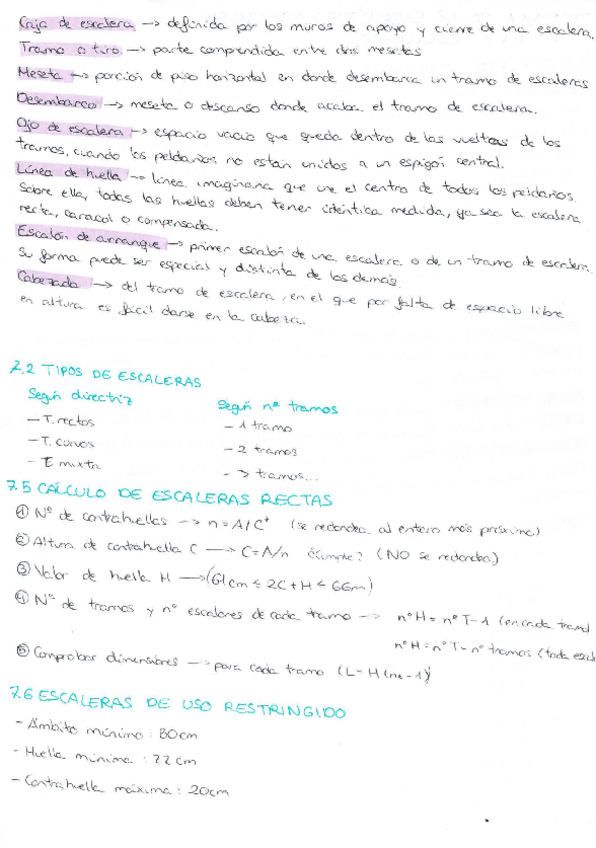 Caja de escalera → definida por los muros de apoyo y cierre de una escalera.
Tramo o tiro → parte comprendida entre dos mesetas
Meseta → porción de piso horizontal en donde desembarca un tramo de escaleras
Desembarco → meseta o descanso donde acaba el tramo de escalera.
Ojo de escalera → espacio vacio que queda dentro de las vueltas de los
tramos, cuando los peldaños no están unidos a un espigón central.
Línea de huella → línea imaginaria que une el centro de todos los peldaños.
Sobre ella, todas las huellas deben tener idéntica medida, ya sea la escalera
recta, caracol o compensada.
Escalón de arranque → primer escalón de una escalera o de un tramo de escalera.
Su forma puede ser especial y distinta de los demás.
Cabezada → del tramo de escalera, en el que por falta de espacio libre
en altura es fácil darse en la cabeza.
7.2 TIPOS DE ESCALERAS
Según directriz
- T. rectos
- T. curvos
- T. mixta
Según nº tramos
- 1 tramo
- 2 tramos
- 3 tramos...
7.5 CÁLCULO DE ESCALERAS RECTAS
① Nº de contrahuellas → n = A/C* (se redondea al entero más próximo)
② Altura de contrahuella C → C = A/n ¿cumple? (NO se redondea)
③ Valor de huella H → (61cm ≤ 2C + H ≤ 66m)
④ Nº de tramos y nº escalones de cada tramo → nºH = nºT - 1 (en cada tramo
nºH = nºT - nº tramos (toda
⑤ Comprobar dimensiones → para cada tramo (L = H (nc - 1)
7.6 ESCALERAS DE USO RESTRINGIDO
- Ámbito mínimo: 80cm
- Huella mínima: 22cm
- Contrahuella máxima: 20cm